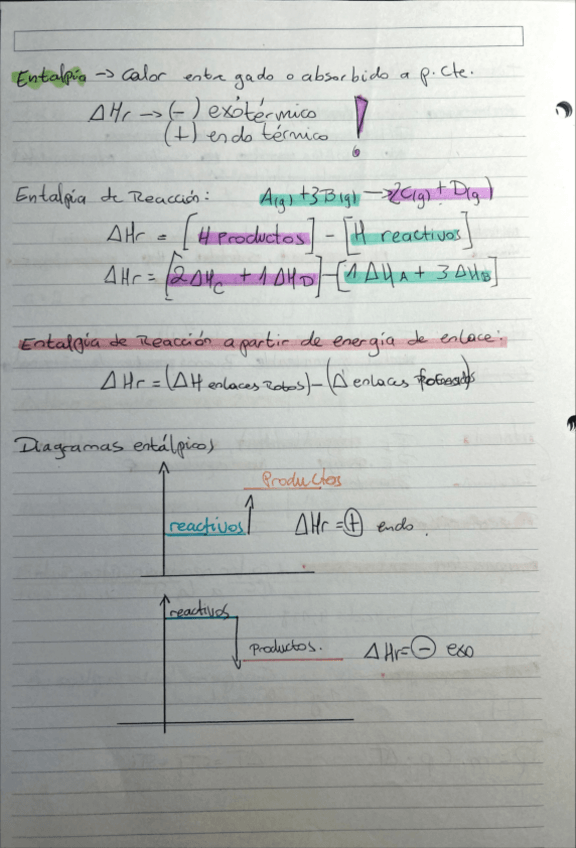 Entalpía → calor entregado o absorbido a p. cte.
ΔHr → (-) exotérmico
(+) endotérmico !
Entalpía de Reacción: A(g) + 3B(g) → 2C(g) + D(g)
ΔHr = [H Productos] - [H reactivos]
ΔHr = [2ΔHC + 1ΔHD] - [1ΔHA + 3ΔHB]
Entalpía de Reacción a partir de energía de enlace:
ΔHr = (ΔH enlaces Rotos) - (Δ enlaces)
Diagramas entálpicos
Productos
reactivos ΔHr = + endo.
reactivos
Productos. ΔHr = - exo